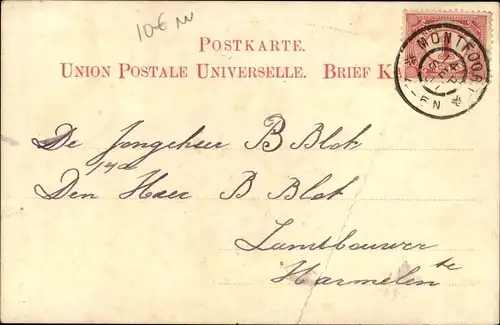 10€
POSTKARTE.
UNION POSTALE UNIVERSELLE. BRIEF KA
MONTFOORT
De Jongeheer B Blok
Den Heer B Blok
Landbouwer
te
Harmelen